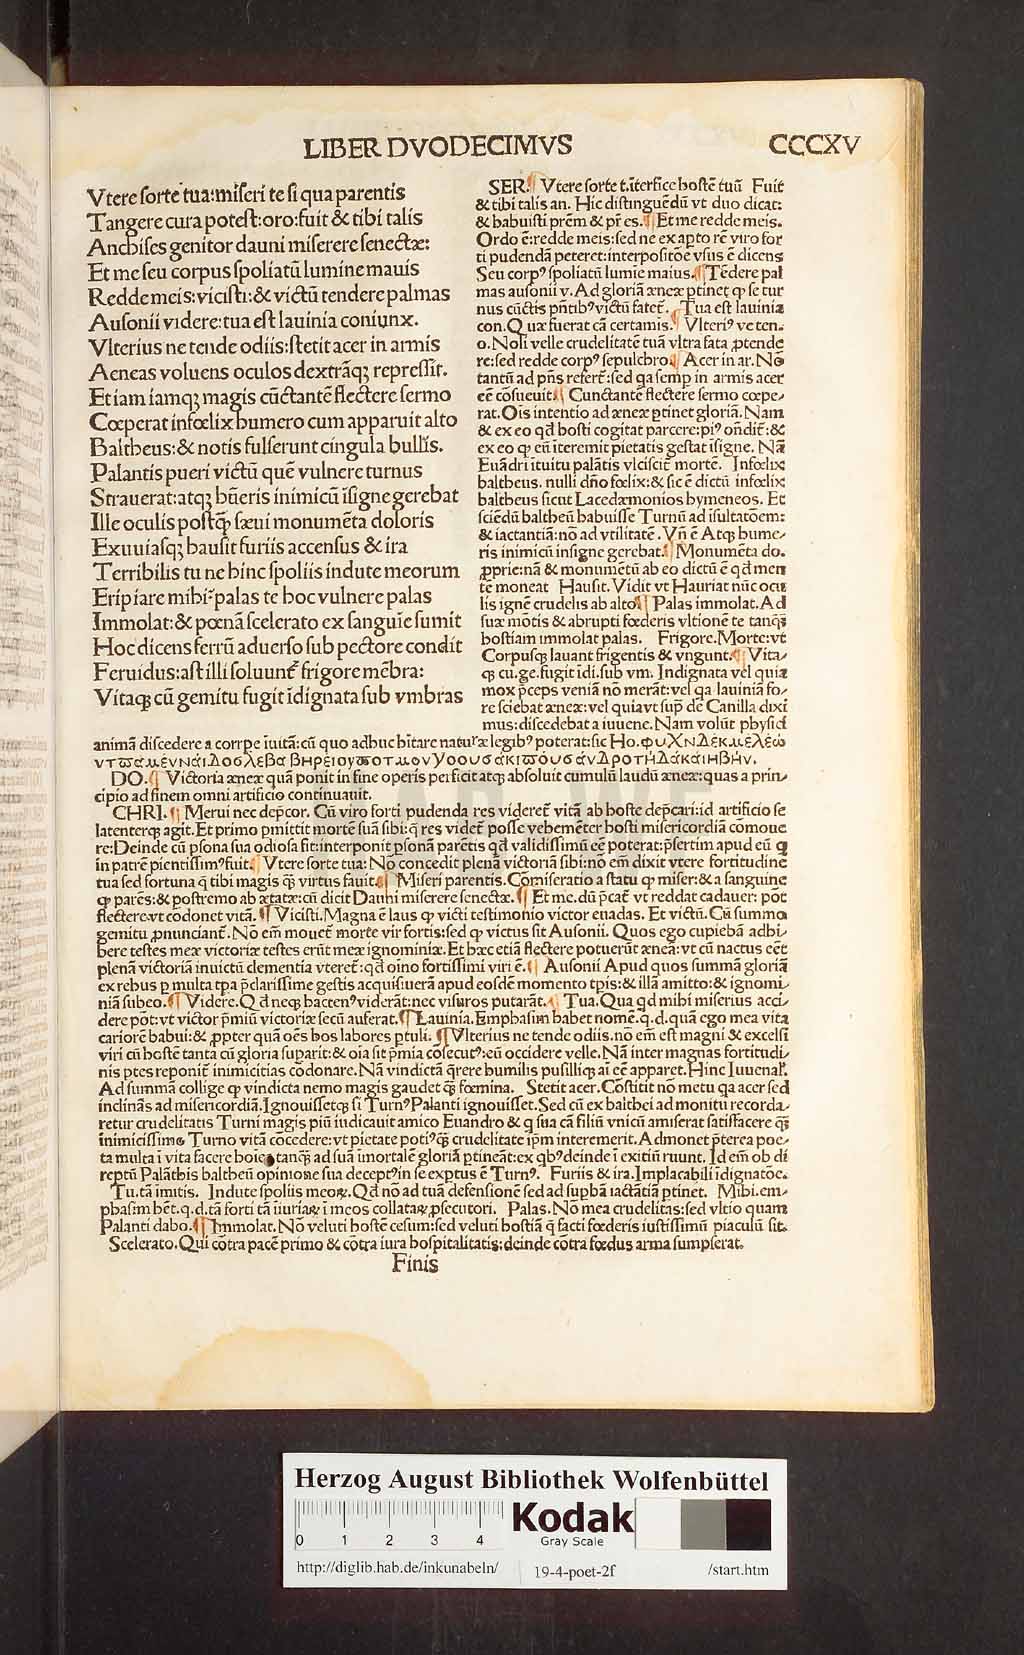 LIBER DVODECIMVS CCCXV
Vtere sorte tua:miseri te si qua parentis
Tangere cura potest:oro:fuit & tibi talis
Anchises genitor dauni miserere senectæ:
Et me seu corpus spoliatū lumine mauis
Redde meis:vicisti:& victū tendere palmas
Ausonii videre:tua est lauinia coniunx.
Vlterius ne tende odiis:stetit acer in armis
Aeneas voluens oculos dextrāq; repressit.
Et iam iamq; magis cūctantē flectere sermo
Cœperat infœlix humero cum apparuit alto
Baltheus:& notis fulserunt cingula bullis.
Palantis pueri victū quē vulnere turnus
Strauerat:atq; hūeris inimicū īsigne gerebat
Ille oculis postq̄ sæui monumēta doloris
Exuuiasq; hausit furiis accensus & ira
Terribilis tu ne hinc spoliis indute meorum
Eripiare mihi?palas te hoc vulnere palas
Immolat:& pœnā scelerato ex sanguīe sumit
Hoc dicens ferrū aduerso sub pectore condit
Feruidus:ast illi soluunt̄ frigore mēbra:
Vitaq; cū gemitu fugit īdignata sub vmbras
SER.¶ Vtere sorte t.īterfice hostē tuū Fuit
& tibi talis an. Hic distinguēdū vt duo dicat:
& habuisti prēm & pr̄ es.¶ Et me redde meis.
Ordo ē:redde meis:sed ne ex apto rē viro for
ti pudendā peteret:interpositōe vsus ē dicens
Seu corpꝰ spoliatū lumīe maius.¶ Tēdere pal
mas ausonii v. Ad gloriā æneæ ptinet ꝙ se tur
nus cūctis pn̄tibꝰ victū fatet̄. ¶ Tua est lauinia
con. Quæ fuerat cā certamis.¶ Vlteriꝰ ve ten.
o. Noli velle crudelitatē tuā vltra fata ꝓtende
re:sed redde corpꝰ sepulchro.¶ Acer in ar. Nō
tantū ad pn̄s refert̄:sed qa semp in armis acer
eē cōsueuit.¶ Cunctantē flectere sermo cœpe-
rat. Ois intentio ad æneæ ptinet gloriā. Nam
& ex eo qd hosti cogitat parcere:piꝰ on̄dit̄:&
ex eo ꝙ eū īteremit pietatis gestat īsigne. Nā
Euādri ītuitu palātis vlciscit̄ mortē. Infœlix
baltheus. nulli dn̄o fœlix:& sic ē dictū infœlix
baltheus sicut Lacedæmonios hymeneos. Et
sciēdū baltheū habuisse Turnū ad īsultatōem:
& iactantiā:nō ad vtilitatē. Vn̄ ē Atq; hume-
ris inimicū insigne gerebat.¶ Monumēta do.
ꝓprie:nā & monumētū ab eo dictū ē qd men
tē moneat Hausit. Vidit vt Hauriat nūc ocu
lis ignē crudelis ab alto¶ Palas immolat. Ad
suæ mōtis & abrupti fœderis vltionē te tanq̄
hostiam immolat palas. Frigore. Morte:vt
Corpusq; lauant frigentis & vngunt.¶ Vita-
q; cu.ge.fugit idi.sub vm. Indignata vel quia
mox p̄ceps veniā nō merāt:vel qa lauinia fo-
re sciebat æneæ:vel quia vt sup̄ de Canilla dixi
mus:discedebat a iuuene. Nam volūt physici
animā discedere a corrpe īuitā:cū quo adhuc hītare naturæ legibꝰ poterat:sic Ho.
DO.¶ Victoria æneæ quā ponit in fine operis perficit atq; absoluit cumulū laudū æneæ:quas a prin-
cipio ad finem omni artificio continuauit.
CHRI.¶ Merui nec dep̄cor. Cū viro forti pudenda res videret̄ vitā ab hoste dep̄cari:id artificio se
latenterq; agit. Et primo pmittit mortē suā sibi:q̄ res videt̄ posse vehemēter hosti misericordiā cōmoue
re:Deinde cū psona sua odiosa sit:interponit psonā parētis qd validissimū eē poterat:p̄sertim apud eū q
in patrē pientissimꝰ fuit.¶ Vtere sorte tua: Nō concedit plenā victoriā sibi:nō em̄ dixit vtere fortitudinē
tua sed fortuna q̄ tibi magis q̄ virtus fauit.¶ Miseri parentis. Cōmiseratio a statu ꝙ miser:& a sanguine
ꝙ parēs:& postremo ab ætatæ:cū dicit Dauni miserere senectæ.¶ Et me.dū p̄cat̄ vt reddat cadauer: pōt
flectere.vt codonet vitā.¶ Vicisti. Magna ē laus ꝙ victi testimonio victor euadas. Et victū. Cū summo
gemitu ꝓnunciant̄. Nō em̄ mouet̄ morte vir fortis:sed ꝙ victus sit Ausonii. Quos ego cupiebā adhi-
bere testes meæ victoriæ testes erūt meæ ignominiæ. Et hæc etiā flectere potuerūt æneā:vt cū nactus eēt
plenā victoriā inuictū clementia vteret̄:qd oino fortissimi viri ē.¶ Ausonii Apud quos summā gloriā
ex rebus p multa tpa p̄clarissime gestis acquisiuerā apud eosdē momento tpis:& illā amitto:& ignomi-
niā subeo.¶ Videre. Qd neq; hactenꝰ viderāt:nec visuros putarāt.¶ Tua. Qua qd mihi miserius acci-
dere pōt:vt victor p̄miū victoriæ secū auferat.¶ Lauinia. Emphasim habet nomē.q.d.quā ego mea vita
cariorē habui:& ꝓpter quā oēs hos labores ptuli.¶ Vlterius ne tende odiis.nō em̄ est magni & excelsi
viri cū hostē tanta cū gloria suparit:& oia sit p̄mia cōsecutꝰ:eū occidere velle. Nā inter magnas fortitudi-
nis ptes reponit̄ inimicitias cōdonare. Nā vindictā q̄rere humilis pusilliq; ai eē apparet. Hinc Iuuenaľ.
Ad summā collige ꝙ vindicta nemo magis gaudet q̄ fœmina. Stetit acer. Cōstitit nō metu qa acer sed
inclinās ad misericordiā. Ignouissetq; si Turnꝰ Palanti ignouisset. Sed cū ex balthei ad monitu recorda-
retur crudelitatis Turni magis piū iudicauit amico Euandro & q sua cā filiū vnicū amiserat satisfacere q̄
inimicissimo Turno vitā cōcedere:vt pietate potiꝰ q̄ crudelitate ip̄m interemerit. Admonet p̄terea poe-
ta multa ī vita facere hoīes tanq̄ ad suā imortalē gloriā ptineāt:ex qbꝰ deinde ī exitiū ruunt. Id em̄ ob di
reptū Palāthis baltheū opinione sua deceptꝰ in se exptus ē Turnꝰ. Furiis & ira. Implacabili īdignatōe.
Tu.tā imitis. Indute spoliis meoꝝ. Qd nō ad tuā defensionē sed ad supbā iactātiā ptinet. Mihi.em-
phasim hēt.q.d.tā forti tā iiuriaꝝ ī meos collataꝝ ꝓsecutori. Palas. Nō mea crudelitas:sed vltio quam
Palanti dabo.¶ Immolat. Nō veluti hostē cesum:sed veluti hostiā q̄ facti fœderis iustissimū piaculū sit.
Scelerato. Qui cōtra pacē primo & cōtra iura hospitalitatis:deinde cōtra fœdus arma sumpserat.
Finis
Herzog August Bibliothek Wolfenbüttel
0 1 2 3 4
Kodak
Gray Scale
http://diglib.hab.de/inkunabeln/ 19-4-poet-2f /start.htm